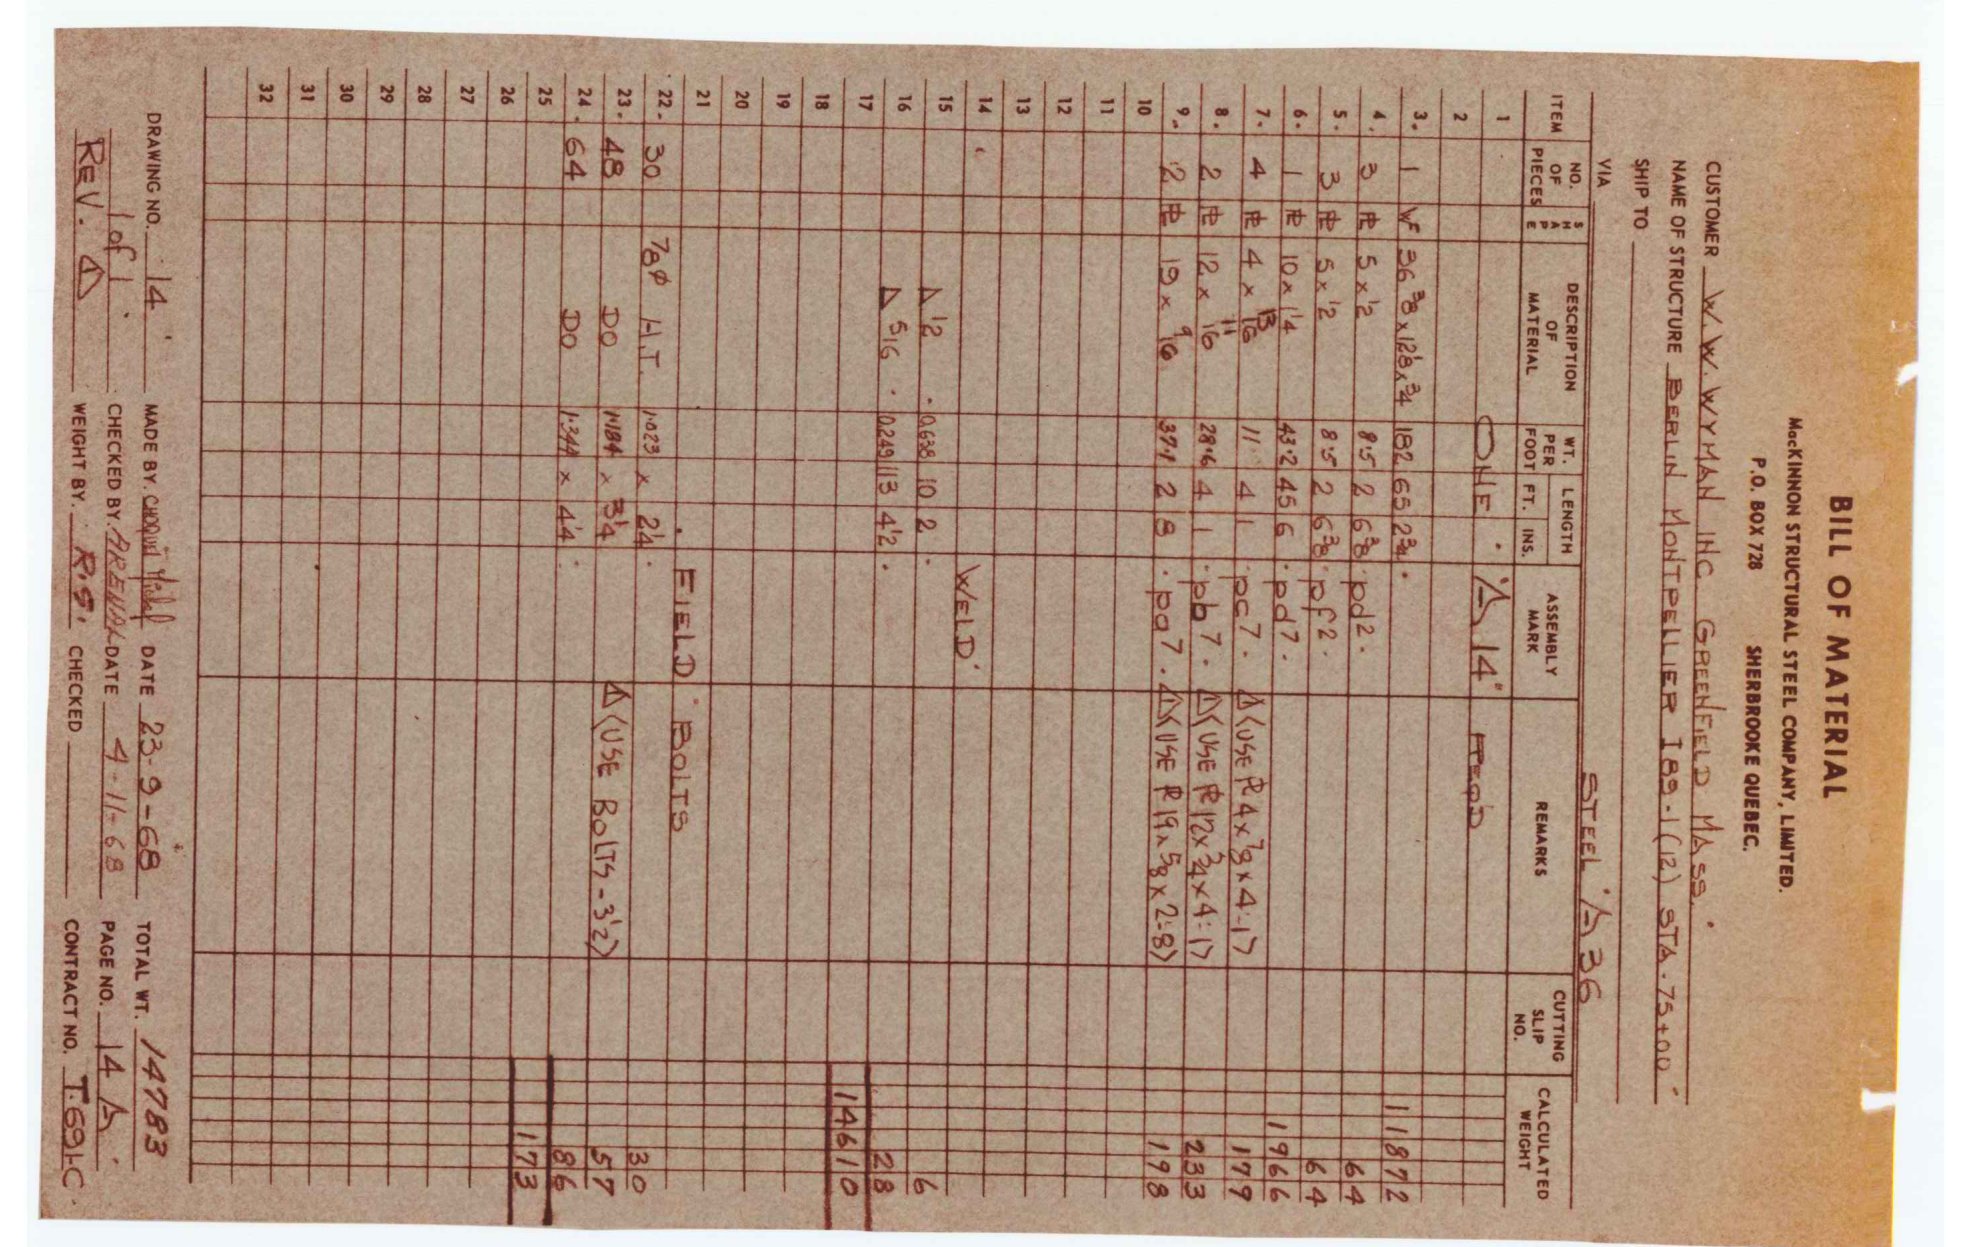 BILL OF MATERIAL
MacKINNON STRUCTURAL STEEL COMPANY, LIMITED.
P.O. BOX 728 SHERBROOKE QUEBEC.
CUSTOMER W. W. WYMAN INC. GREENFIELD MASS.
NAME OF STRUCTURE BERLIN MONTPELLIER I89-1(12) STA. 75+00
SHIP TO
VIA STEEL A36
ITEM NO. OF PIECES SHAPE DESCRIPTION OF MATERIAL WT. PER FOOT LENGTH FT. INS. ASSEMBLY MARK REMARKS CUTTING SLIP NO. CALCULATED WEIGHT
1 ONE A14 REQ'D
2
3. 1 WF 36 3/8 x 12 1/8 x 3/4 182 65 2 3/4 11872
4. 3 PL 5 x 1/2 8.5 2 6 3/8 pd2. 64
5. 3 PL 5 x 1/2 8.5 2 6 3/8 pf2. 64
6. 1 PL 10 x 1 1/4 43.2 45 6 pd7. 1966
7. 4 PL 4 x 13/16 11. 4 1 pc7. Δ(USE PL 4 x 7/8 x 4-1) 179
8. 2 PL 12 x 11/16 28.6 4 1 pb7. Δ(USE PL 12 x 3/4 x 4-1) 233
9. 2 PL 19 x 9/16 37.1 2 8 pa7. Δ(USE PL 19 x 5/8 x 2-8) 198
10
11
12
13
14 WELD
15 Δ 1/2 0.638 10 2 6
16 Δ 5/16 0.249 113 4 1/2 28
17 14610
18
19
20
21 FIELD BOLTS
22. 30 7/8φ H.T. 1.023 x 2 1/4 30
23. 48 DO 1.184 x 3 1/4 Δ(USE BOLTS - 3 1/2) 57
24. 64 DO 1.344 x 4 1/4 86
25 173
26
27
28
29
30
31
32
DRAWING NO. 14 MADE BY. DATE 23-9-68 TOTAL WT. 14783
1 of 1 CHECKED BY. DATE 4-11-68 PAGE NO. 14 A
REV. Δ WEIGHT BY. R.S. CHECKED CONTRACT NO. T-691-C